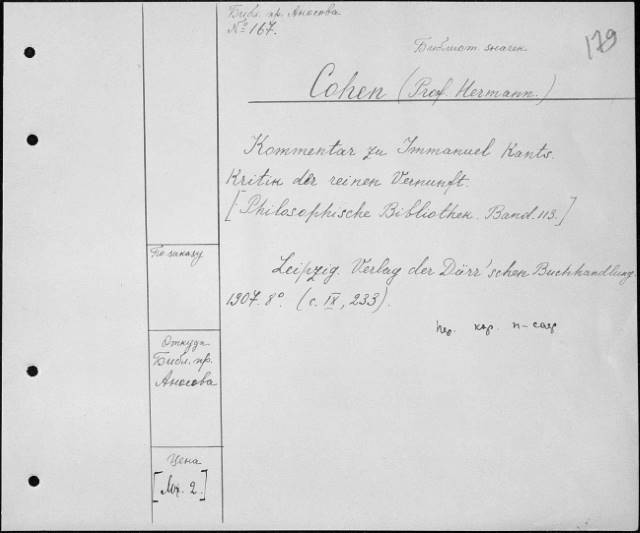 Библ. пр. Аносова
№ 167.
179
Библиот. значек
Cohen (Prof. Hermann.)
Kommentar zu Immanuel Kants.
Kritik der reinen Vernunft.
[Philosophische Bibliothek. Band. 113.]
По заказу
Leipzig. Verlag der Dürr'schen Buchhandlung
1907. 8°. (с. IX, 233).
Откуда
Библ. пр.
Аносова
Цена
[Mk. 2.]